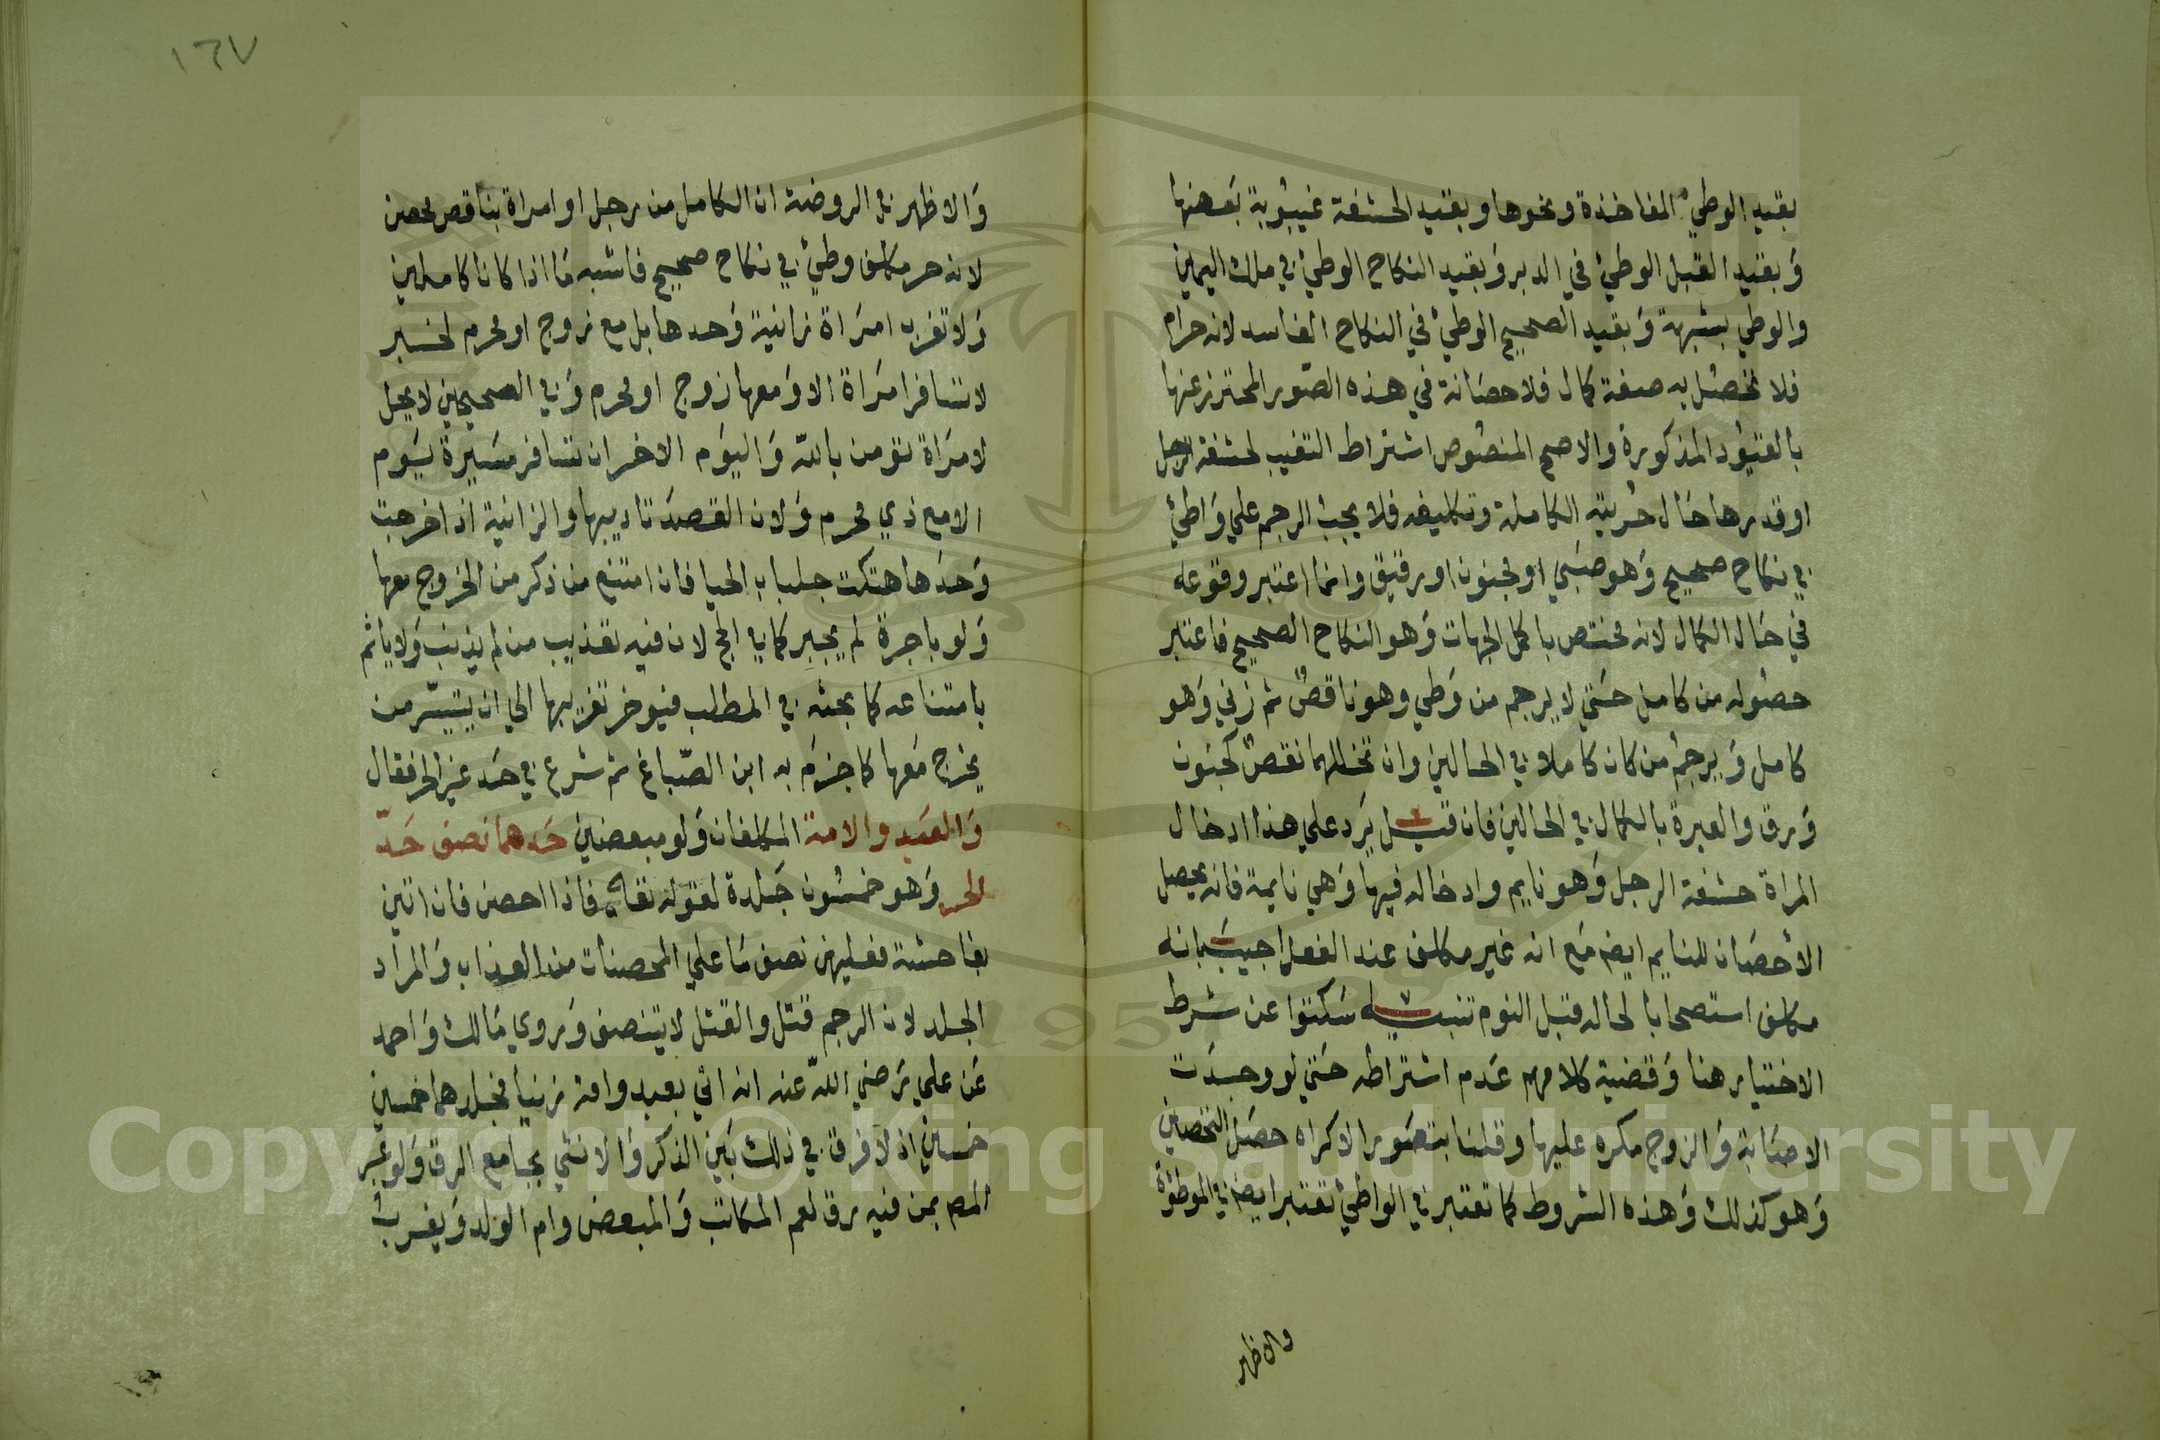 بقيد الوطي المفاخذة ونحوها وبقيد الحشفة غيبوبة بعضها
وبقيد القبل الوطئ في الدبر وبقيد النكاح الوطئ في ملك اليمين
والوطي بشبهة وبقيد الصحيح الوطئ في النكاح الفاسد لانه حرام
فلا تحصل به صفة كمال فلا حصانة في هذه الصور المحترز عنها
بالقيود المذكورة والاصح المنصوص اشتراط التغيب لحشفة الرجل
او قدرها حال حريته الكاملة وتكليفه فلا يجب الرجم علي واطئ
في نكاح صحيح وهو صبي او مجنون او رقيق وانما اعتبر وقوعه
في حال الكمال لانه مختص باكمل الجهات وهو النكاح الصحيح فاعتبر
حصوله من كامل حتي لا يرجم من وطي وهو ناقص ثم زني وهو
كامل ويرجم من كان كاملا في الحالين وان تخللهما نقص كجنون
ورق والعبرة بالكمال في الحالين فان قيل يرد علي هذا ادخال
المراة حشفة الرجل وهو نايم وادخاله فيها وهي نايمة فانه يحصل
الاحصان للنايم ايضا مع انه غير مكلف عند الفعل اجيب بانه
مكلف استصحابا لحاله قبل النوم تنبيه سكتوا عن شرط
الاختيار هنا وقضية كلامهم عدم اشتراطه حتي لو وجدت
الاصابة والزوج مكره عليها وقلنا بتصور الاكراه حصل التحصين
وهو كذلك وهذه الشروط كما تعتبر في الواطئ تعتبر ايضا في الموطؤة
والاظهر
١٦٧
والاظهر في الروضة ان الكامل من رجل او امراة بناقص محصن
لانه حر مكلف وطئ في نكاح صحيح فاشبه ما اذا كانا كاملين
ولا تغرب امراة زانية وحدها بل مع زوج او محرم لخبر
لا تسافر امراة الا ومعها زوج او محرم وفي الصحيحين لا يحل
لامراة تومن بالله واليوم الاخر ان تسافر مسيرة يوم
الا مع ذي محرم ولان القصد تاديبها والزانية اذا خرجت
وحدها هتكت جلباب الحيا فان امتنع من ذكر من الخروج معها
ولو باجرة لم يجبر كما في الحج لان فيه تعذيب من لم يذنب ولا ياثم
بامتناعه كما بحثه في المطلب فيوخر تغريبها الي ان يتيسر من
يخرج معها كما جزم به ابن الصباغ ثم شرع في حد غير الحر فقال
والعبد والامة المكلفان ولو مبعضين حدهما نصف حد
الحر وهو خمسون جلدة لقوله تعالي فاذا احصن فان اتين
بفاحشة فعليهن نصف ما علي المحصنات من العذاب والمراد
الجلد لان الرجم قتل والقتل لا يتنصف وروي مالك واحمد
عن علي رضي الله عنه انه اتي بعبد وامة زنيا فجلدهما خمسين
خمسين اذ لا فرق في ذلك بين الذكر والانثي بجامع الرق ولو عبر
المص بمن فيه رق لعم المكاتب والمبعض وام الولد ويغرب
Copyright © King Saud University
1957